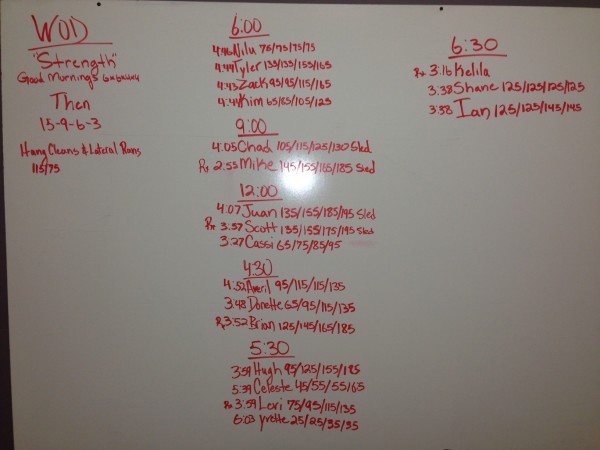 WOD
"Strength"
Good Mornings 6x6x6x6x
Then
15-9-6-3
Hang Cleans & Lateral Runs
115/75
6:00
4:46 Nilu 75/75/75/75
4:44 Tyler 135/135/155/165
4:43 Zack 95/95/115/165
4:44 Kim 65/85/105/125
9:00
4:05 Chad 105/115/125/130 Sled
Rx 2:53 Mike 145/155/165/185 Sled
12:00
4:07 Juan 135/155/185/195 Sled
Rx 3:57 Scott 135/155/175/195 Sled
3:27 Cassi 65/75/85/95
4:30
4:52 Averil 95/115/115/135
3:48 Donette 65/95/115/135
Rx 3:52 Brian 125/145/165/185
5:30
3:59 Hugh 95/125/155/185
5:39 Celeste 45/55/55/65
Rx 3:59 Lori 75/95/115/135
6:03 Yvette 25/25/35/35
6:30
Rx 3:16 Kelila
3:38 Shane 125/125/125/125
3:38 Ian 125/125/145/145